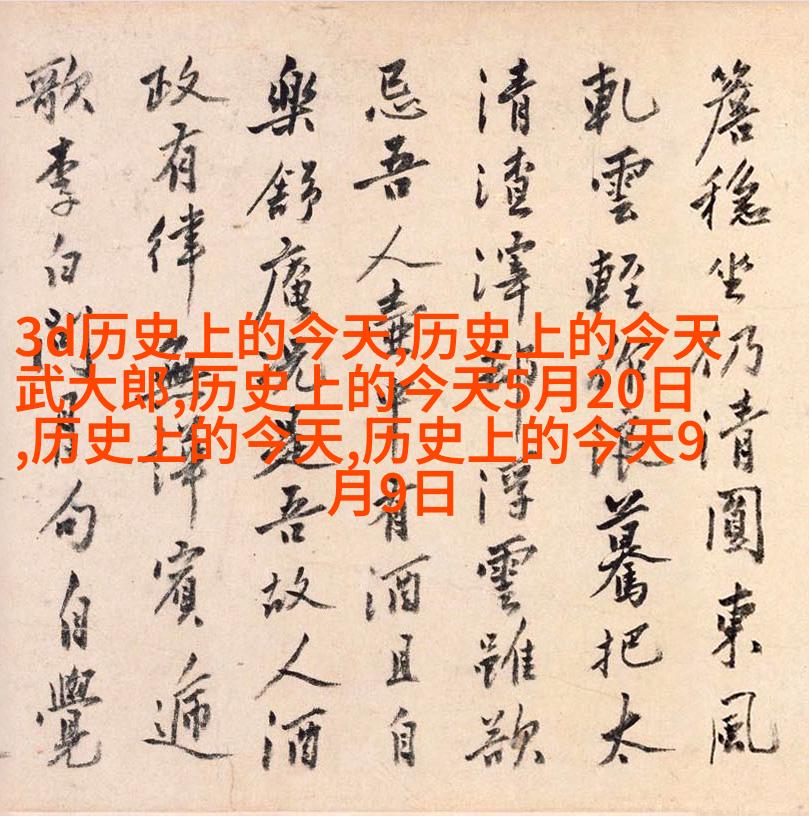 簷穩坐仍清圓東風
軋雲輕驀把太
清渣滓浮雲雖欲
忌吾人壺中有酒且自
樂舒庵況是吾故人酒
政有律無譁賓遞
歌李白問月句自覺
3d历史上的今天,历史上的今天
武大郎,历史上的今天5月20日
,历史上的今天,历史上的今天9
月9日